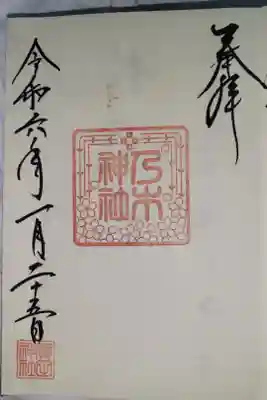 奉拝
乃木
神社
令和六年一月二十五日